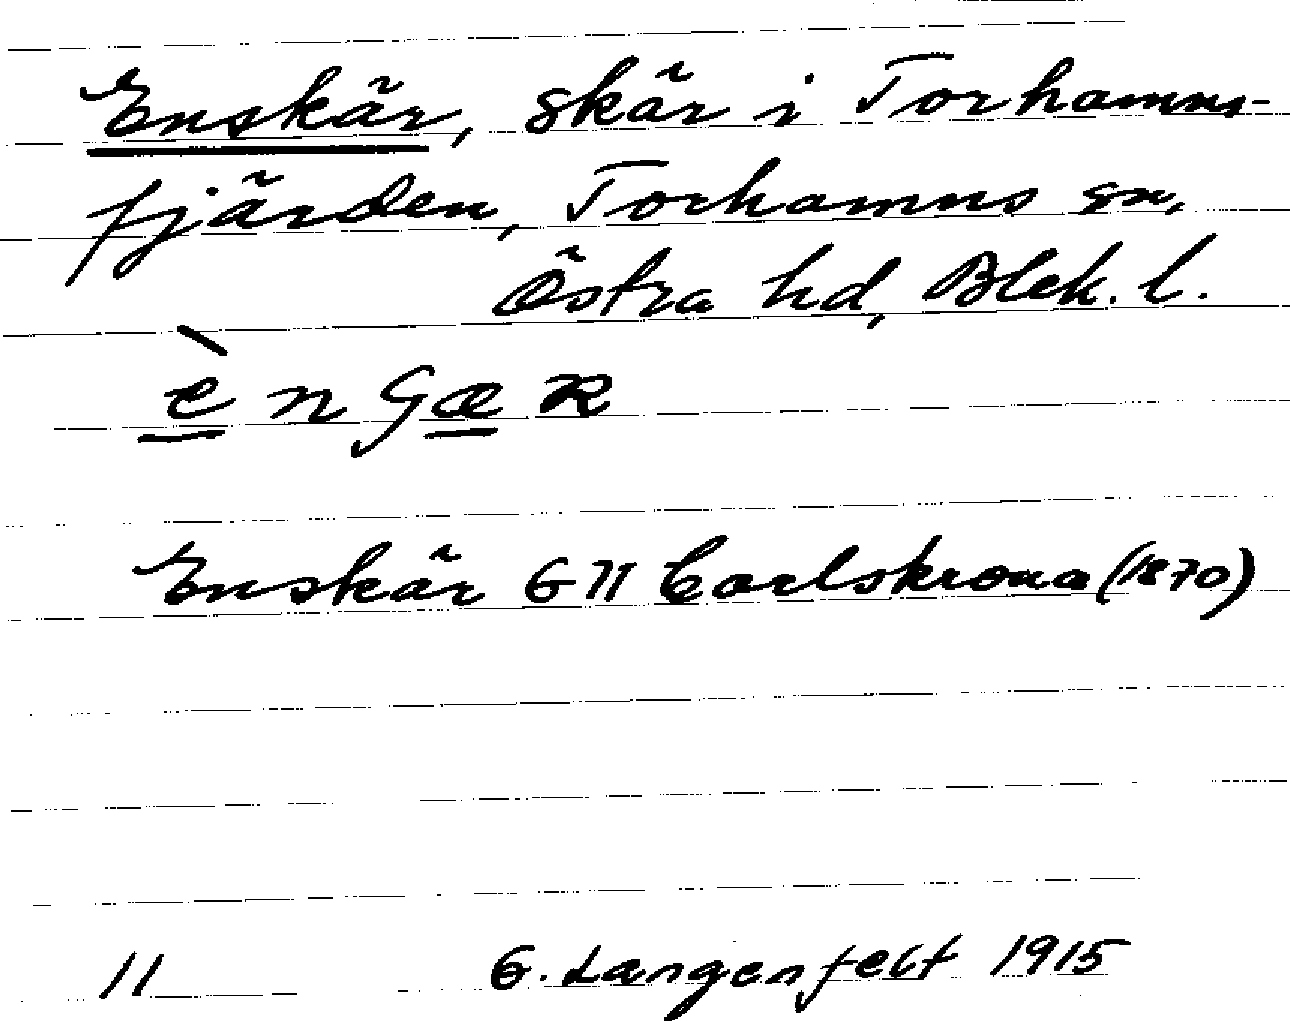 Enskär, skär i Torhamns-
fjärden, Torhamns sn,
Östra hd, Blek. l.
è n ʃ æ R
Enskär G 71 Carlskrona (1870)
11 G. Langenfelt 1915